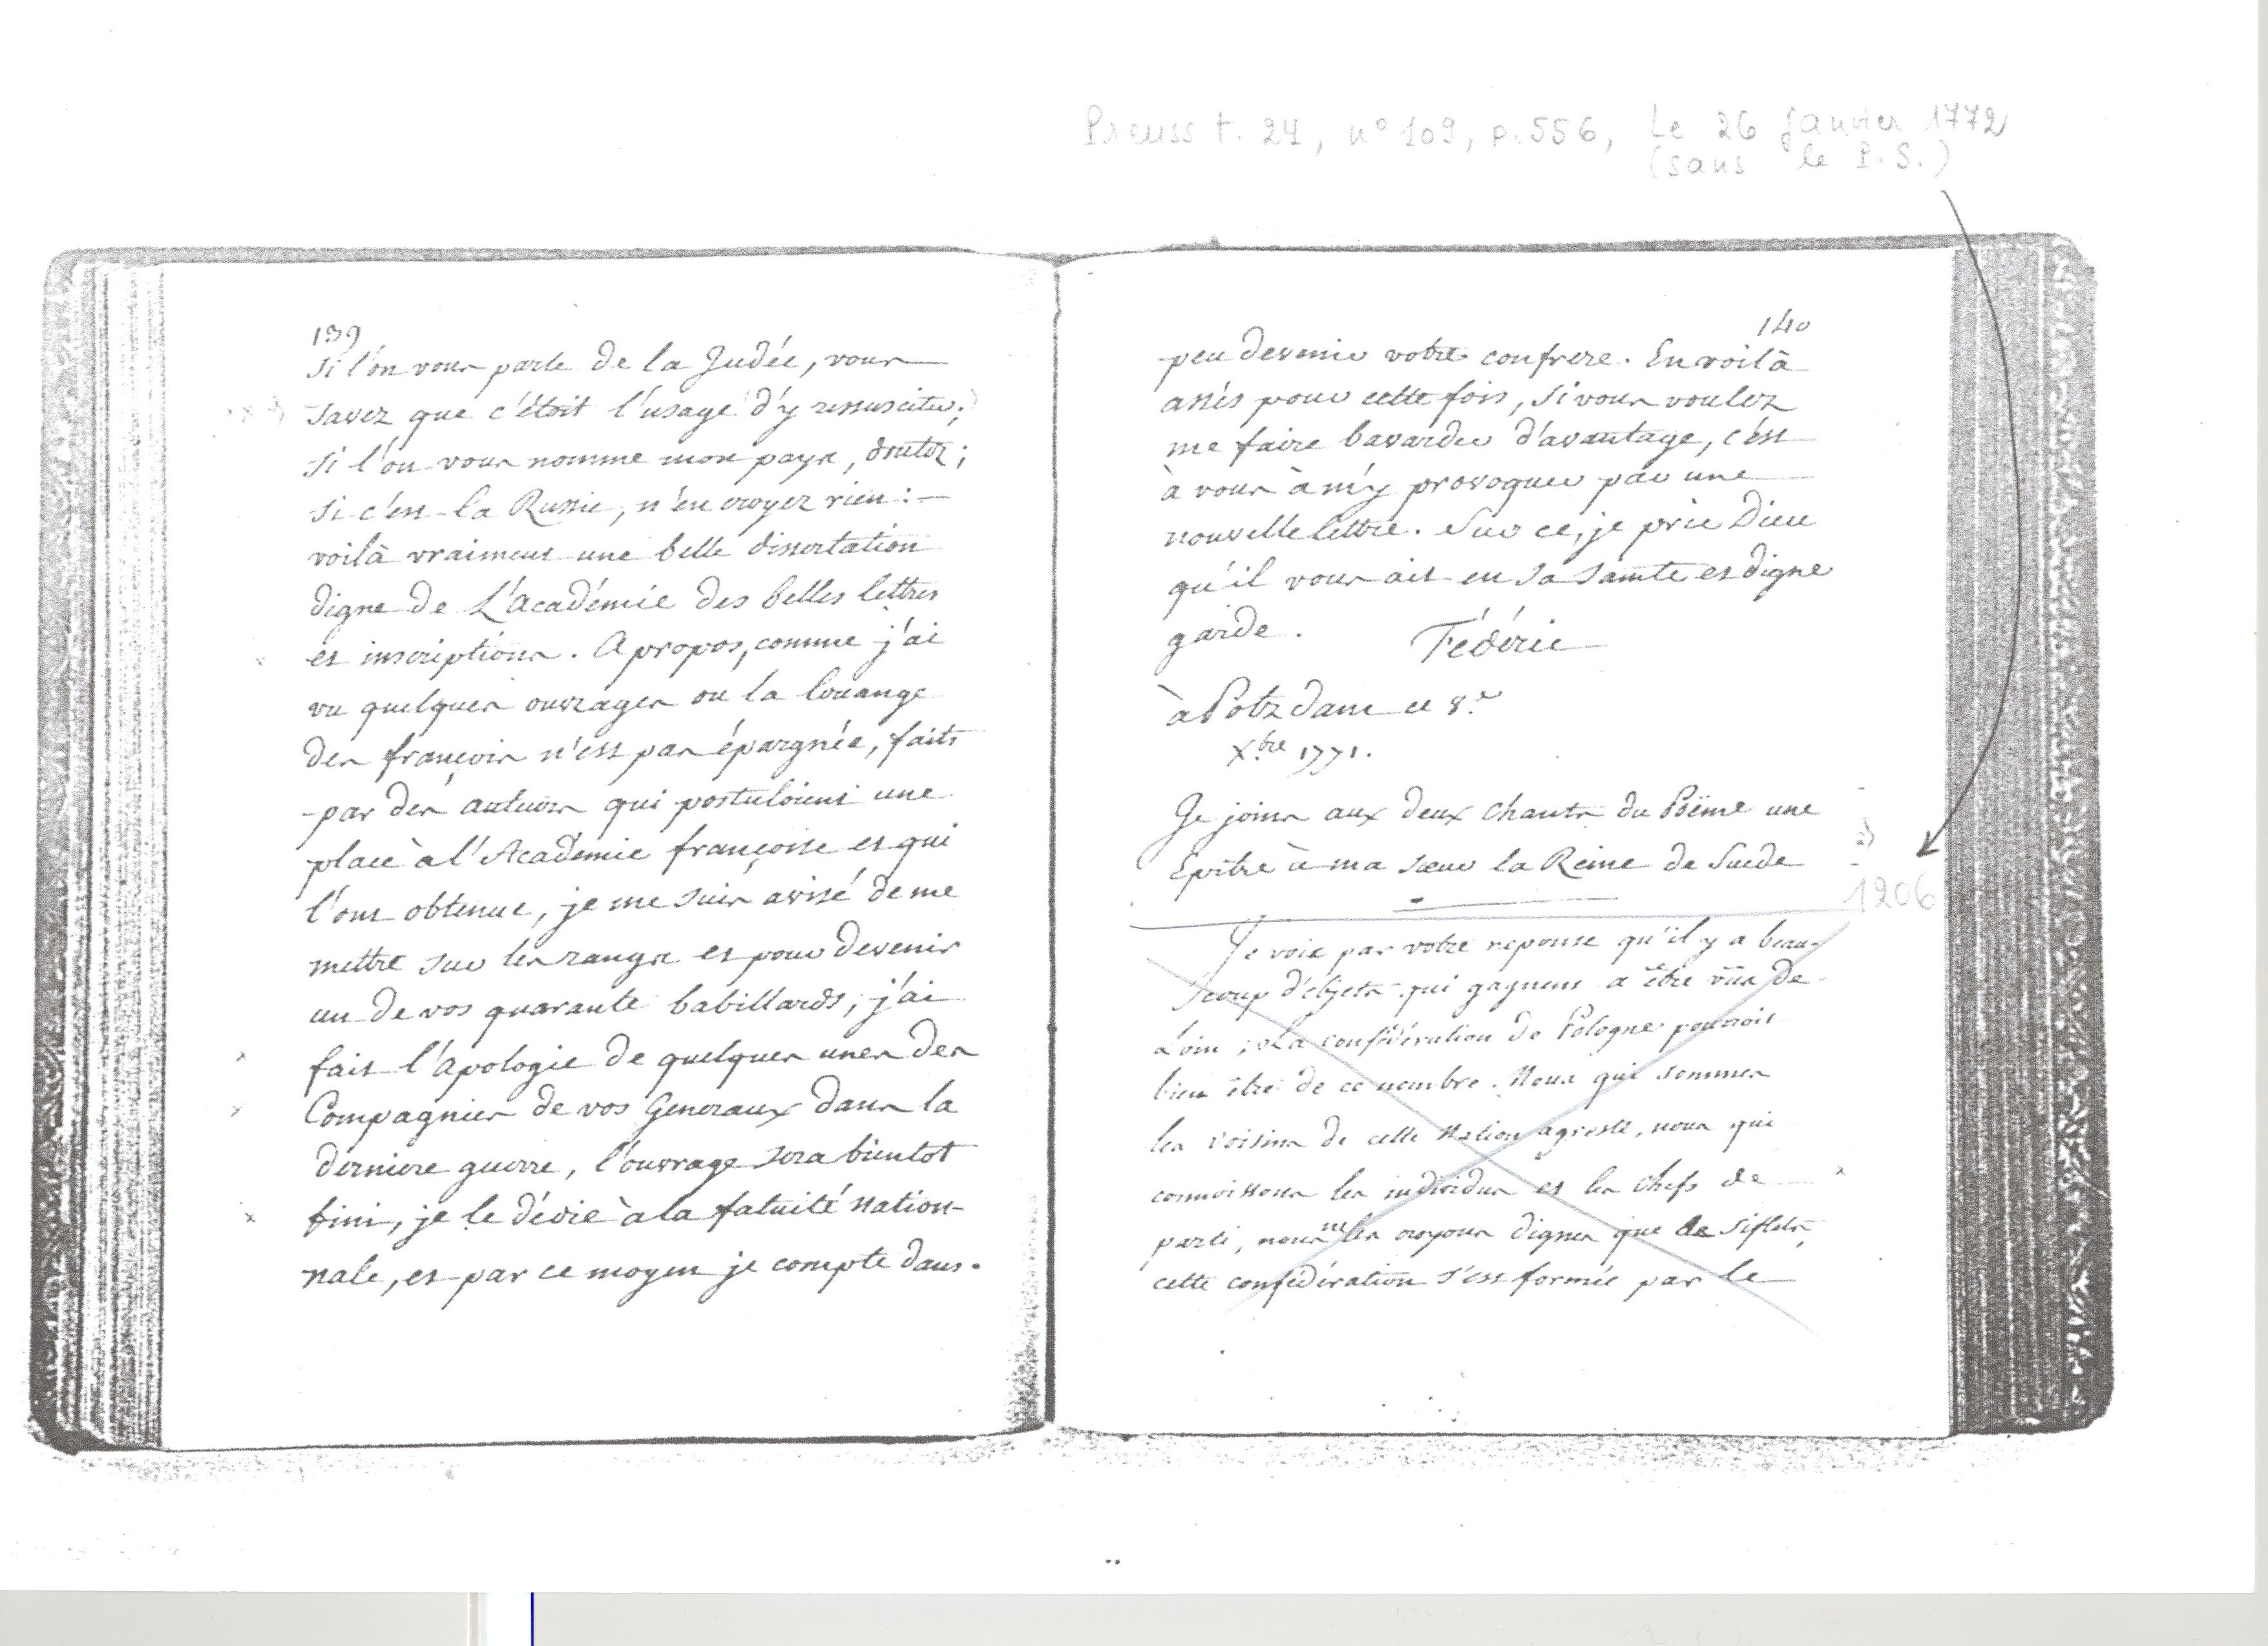 Preuss t. 24, n° 109, p. 556, Le 26 Janvier 1772
(sans le P.S.)
139
Si l'on vous parle de la Judée, vous
savez que c'étoit l'usage d'y ressusciter;
si l'on vous nomme mon pays, doutez;
si c'est la Russie, n'en croyez rien :
voilà vraiment une belle dissertation
digne de L'Académie des belles lettres
et inscriptions. A propos, comme j'ai
vu quelques ouvrages ou la louange
des françois n'est pas épargnée, faits
par des auteurs qui postuloient une
place à l'Académie françoise et qui
l'ont obtenue, je me suis avisé de me
mettre sur les rangs et pour devenir
un de vos quarante babillards, j'ai
fait l'apologie de quelques unes des
Compagnies de vos Generaux dans la
derniere guerre, l'ouvrage sera bientot
fini, je le dédie à la fatuité nation-
nale, et par ce moyen je compte dans
140
peu devenir votre confrere. En voilà
assés pour cette fois, si vous voulez
me faire bavarder d'avantage, c'est
à vous à m'y provoquer par une
nouvelle lettre. Sur ce, je prie Dieu
qu'il vous ait en sa sainte et digne
garde. Fédéric
à Potzdam ce 8.e
Xbre 1771.
Je joins aux deux chants du Poëme une
Epitre à ma sœur la Reine de Suede
1206
Je vois par votre reponse qu'il y a beau-
coup d'objets qui gagnent a être vûs de
Loin ; La confédération de Pologne pourroit
bien être de ce nombre. Nous qui sommes
les voisins de cette Nation agreste, nous qui
connoissons les individus et les chefs de
parti, nous ne les croyons dignes que de siflets,
cette confédération s'est formée par le